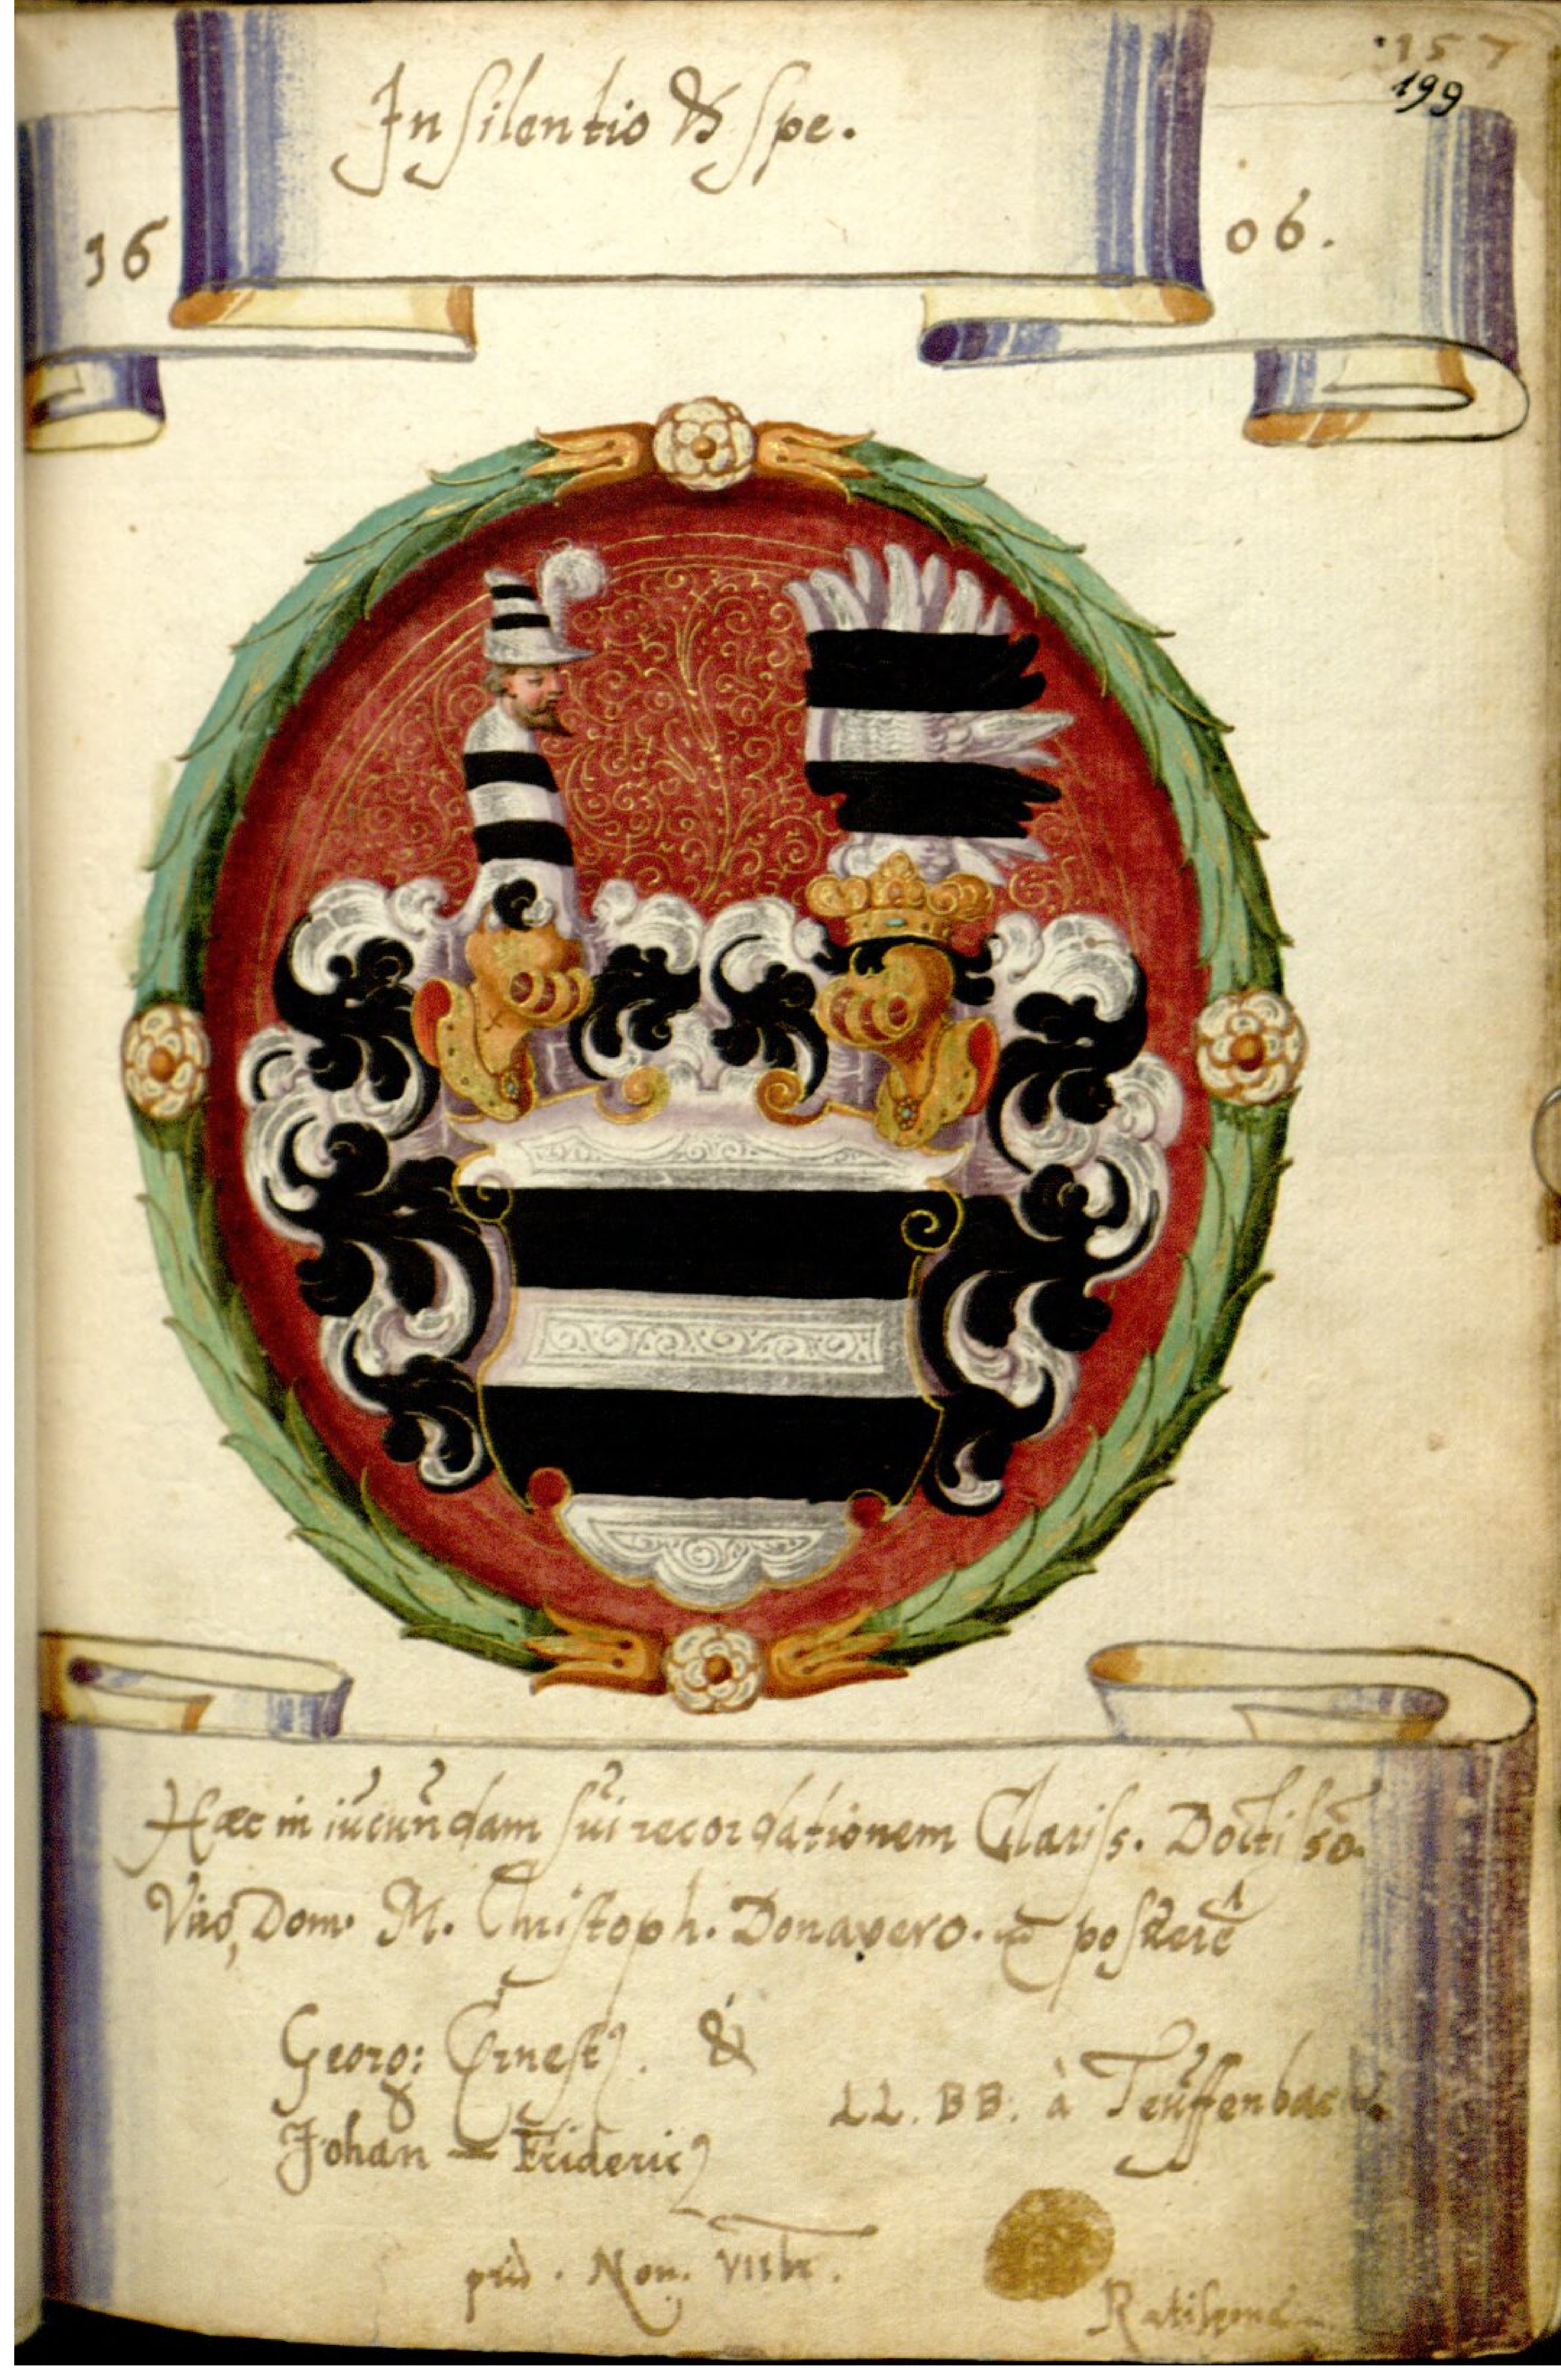 157
199
In silentio & spe.
16 06.
Haec in iucundam sui recordationem Clariss. Doctisso.
Viro, Dom. M. Christoph. Donavero. posuere
Georg: Ernest9. &
Johan — Frideric9
LL. BB. à Teuffenbach.
prid. Non. VIIbr.
Ratisponae